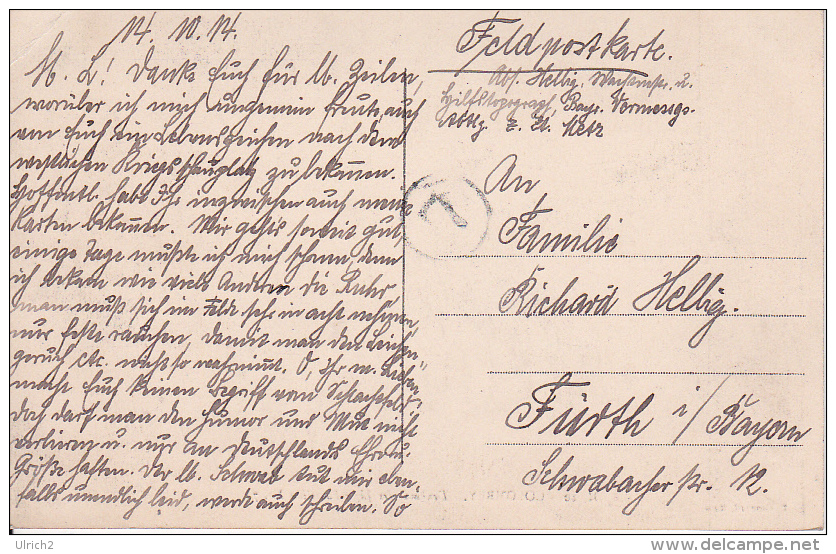 14. 10. 14.
M. L! Danke Euch für lb. Zeilen,
worüber ich mich ungemein freute, auch
von Euch ein Lebenszeichen nach dem
westlichen Kriegsschauplatz zu bekommen.
Hoffentl. habt Ihr inzwischen auch meine
Karten bekommen. Mir geht's soweit gut,
einige Tage mußte ich mich schonen, denn
ich bekam wie viele Anderen die Ruhr,
man muß sich im Felde sehr in acht nehmen
nur feste rauchen, damit man den Leichen-
geruch etc. nicht so wahrnimmt. O, ihr m. Lieben,
macht Euch keinen Begriff vom Schlachtfeld,
doch darf man den Humor und Mut nicht
verlieren u. nur an Deutschlands Ehre u.
Größe haften. Der lb. Schwab tut mir eben-
falls unendlich leid, werde auch schreiben. So
Feldpostkarte.
Abs. Helbig, Wachtmstr. u.
Hilfstopograph, Bayr. Vermessgs-
Abtlg. z. Zt. Metz
An
Familie
Richard Helbig.
Fürth i/Bayern
Schwabacherstr. 12.
T
© Ulrich2
delcampe.net